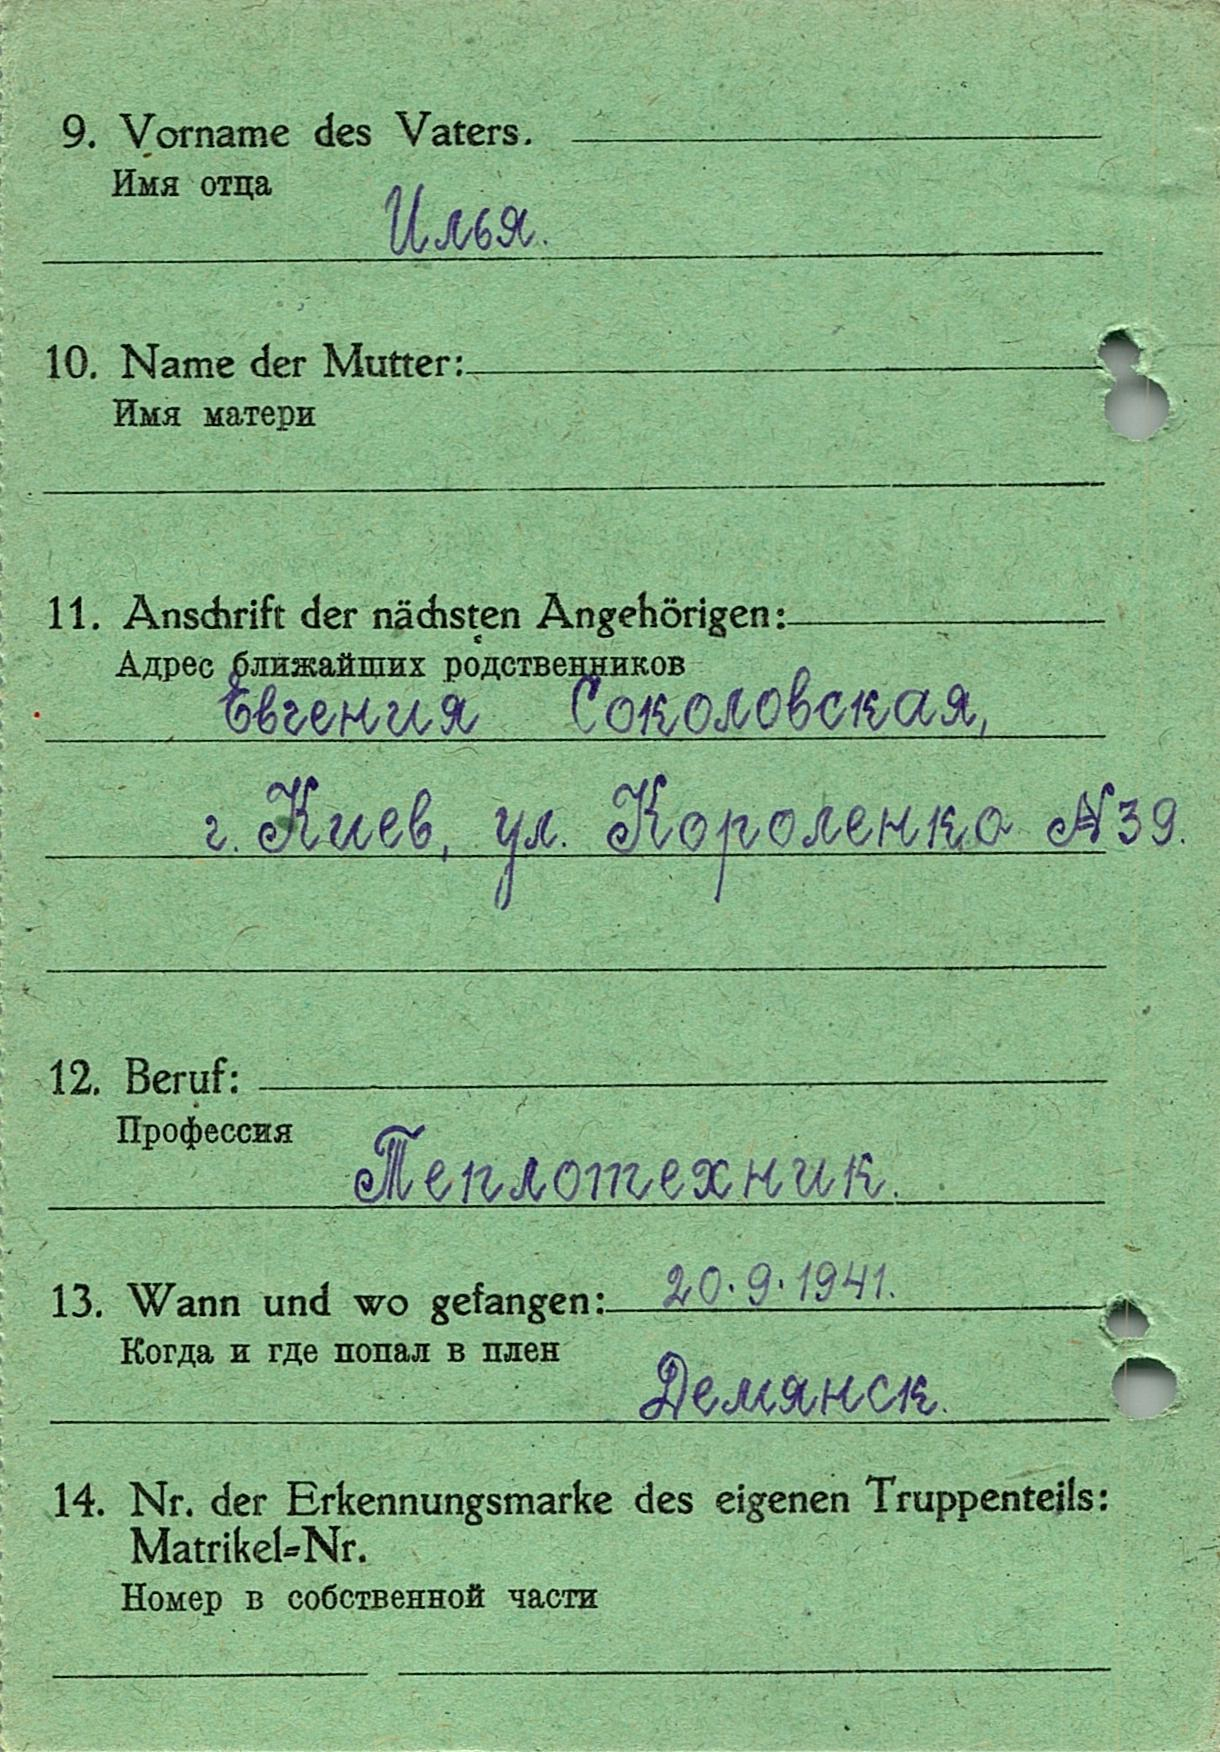 9. Vorname des Vaters.
Имя отца
Илья.
10. Name der Mutter:
Имя матери
11. Anschrift der nächsten Angehörigen:
Адрес ближайших родственников
Евгения Соколовская,
г. Киев, ул. Короленко N 39.
12. Beruf:
Профессия
Теплотехник.
13. Wann und wo gefangen: 20.9.1941.
Когда и где попал в плен
Демянск.
14. Nr. der Erkennungsmarke des eigenen Truppenteils:
Matrikel-Nr.
Номер в собственной части